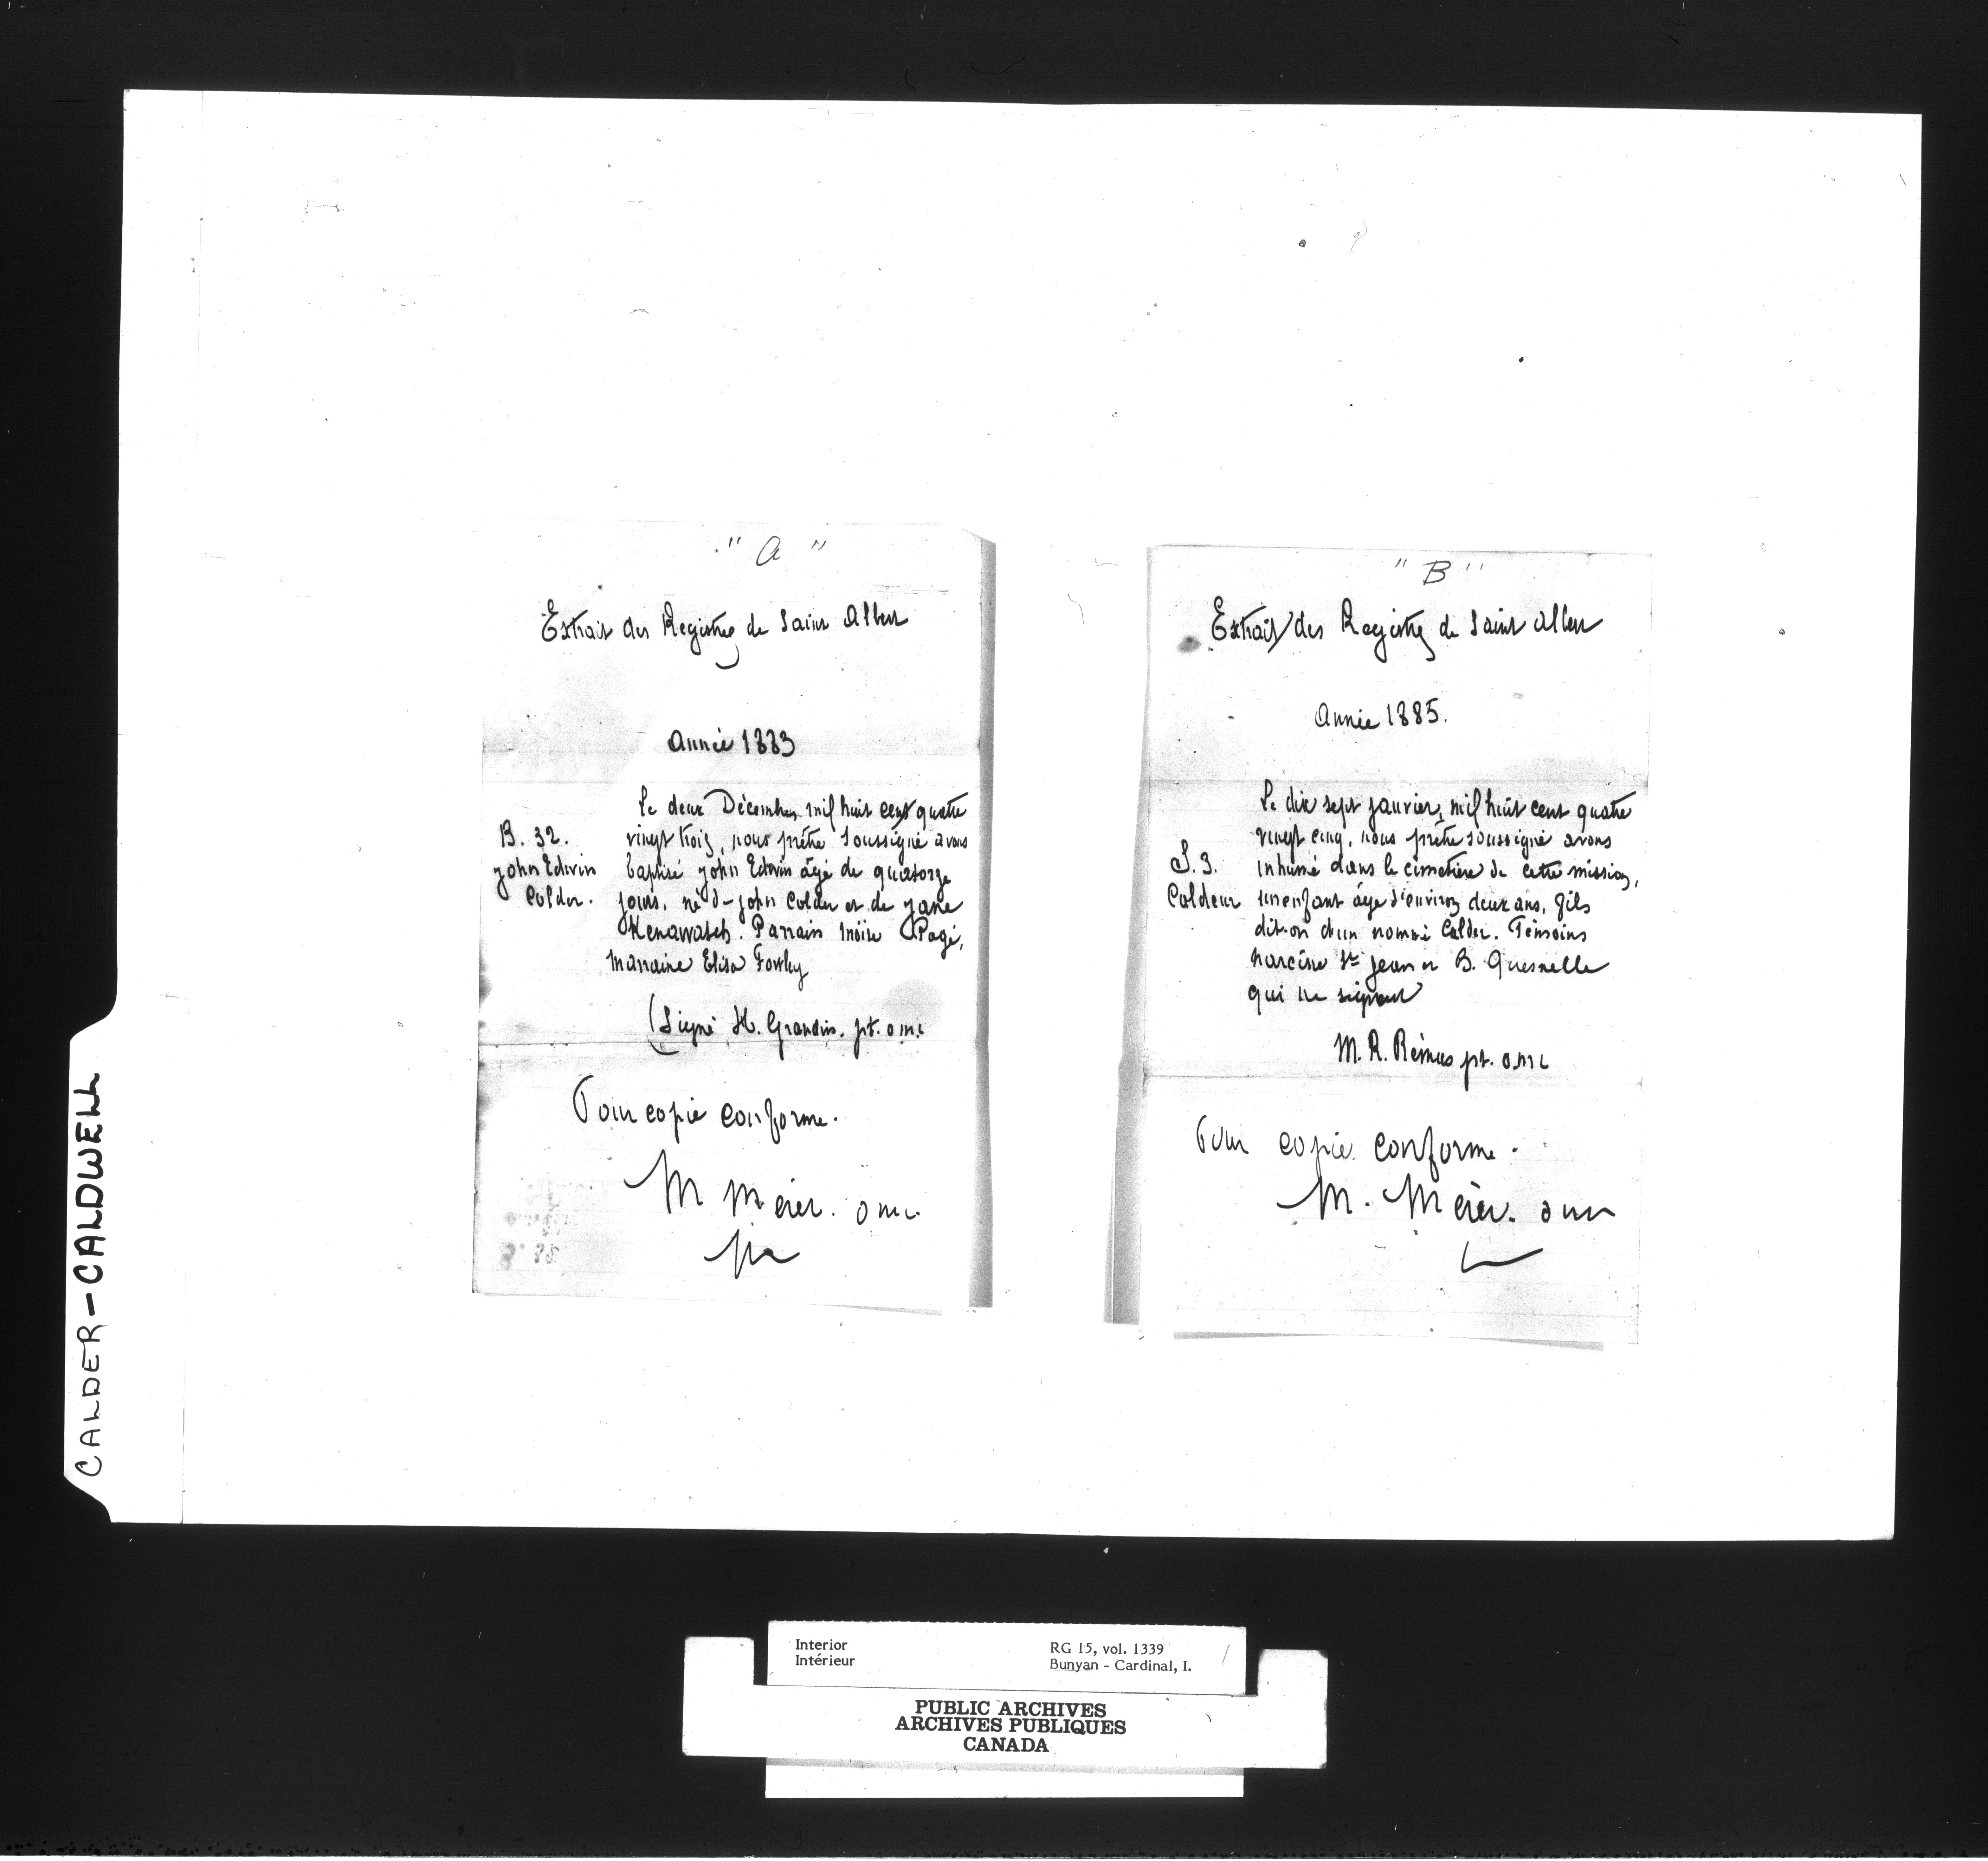 "A"
Extrait des Registres de Saint Albert
Année 1883
Le deux Décembre mil huit cent quatre
vingt trois, nous prêtre soussigné avons
baptisé John Edwin âgé de quatorze
jours, né de John Colder et de Jane
Kenawasch. Parrain Moïse Pagé,
marraine Elisa Fowley
B. 32.
John Edwin
Colder.
(Signé H. Grandin. pt. o m i
Pour copie conforme.
M Mérer. o m i.
"B"
Extrait des Registres de Saint Albert
Année 1885.
Le dix sept janvier, mil huit cent quatre
vingt cinq, nous prêtre soussigné avons
inhumé dans le cimetière de cette mission,
un enfant âgé d'environ deux ans, fils
dit-on d'un nommé Calder. Témoins
Narcisse St Jean et B. Quesnelle
qui ne signent
S. 3.
Coldeur
M. R. Rémas pt. o m i
Pour copie conforme.
M. Mérer. o m i
CALDER-CALDWELL
Interior
Intérieur
RG 15, vol. 1339
Bunyan - Cardinal, I.
PUBLIC ARCHIVES
ARCHIVES PUBLIQUES
CANADA